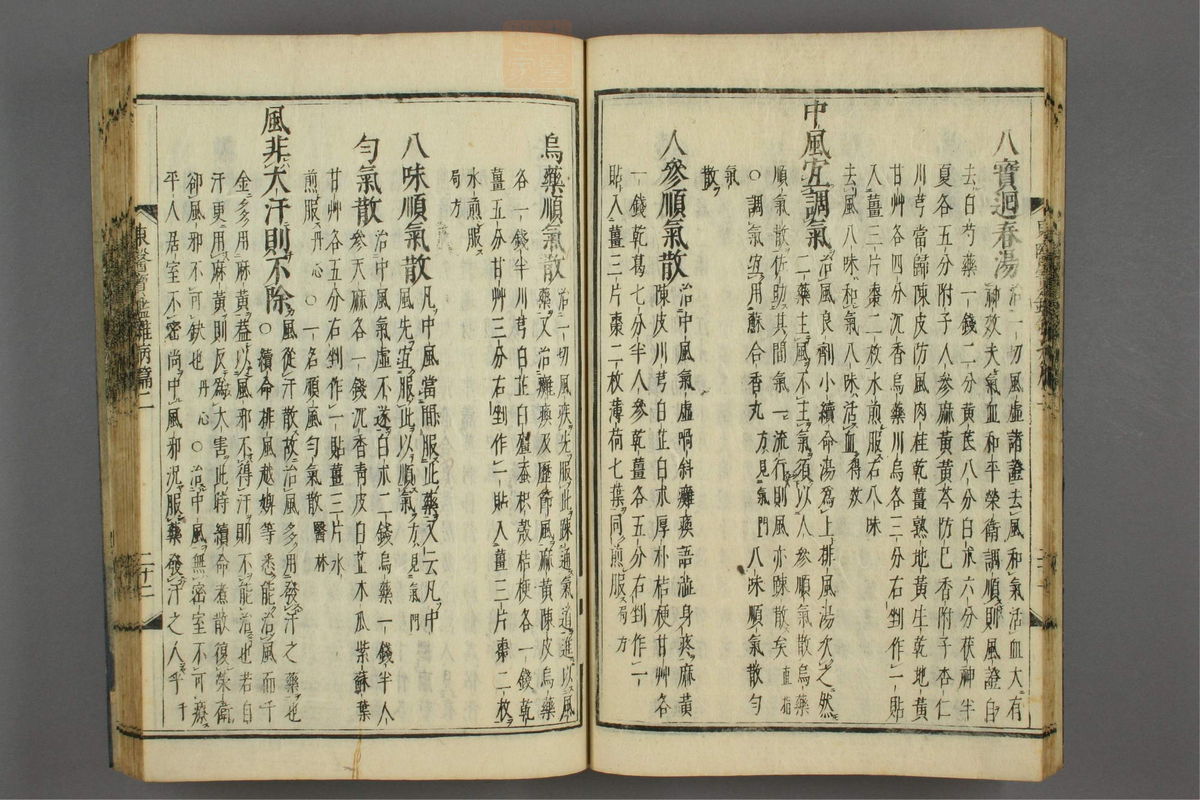 八寶迴春湯治一切風虛諸證去風和氣活血大有
神效夫氣血和平榮衛調順則風證自
去白芍藥一錢二分黃芪八分白朮六分茯神半
夏各五分附子人參麻黃黃芩防己香附子杏仁
川芎當歸陳皮防風肉桂乾薑熟地黃生乾地黃
甘艸各四分沉香烏藥川烏各三分右剉作一貼
入薑三片棗二枚水煎服右八味
去風八味和氣八味活血得效
中風宜調氣治風良劑小續命湯爲上排風湯次之然
二藥主風不主氣須以人參順氣散烏藥
順氣散佐助其間氣一流行則風亦踈散矣直指
○調氣宜用蘇合香丸方見氣門八味順氣散勻
氣
散
人參順氣散治中風氣虛喎斜癱瘓語澁身疼麻黃
陳皮川芎白芷白朮厚朴桔梗甘艸各
一錢乾葛七分半人參乾薑各五分右剉作一
貼入薑三片棗二枚薄荷七葉同煎服局方
烏藥順氣散治一切風疾先服此踈通氣道進以風
藥又治癱瘓及歷節風麻黃陳皮烏藥
各一錢半川芎白芷白殭蚕枳殼桔梗各一錢乾
薑五分甘艸三分右剉作一貼入薑三片棗二枚
水煎服
局方
八味順氣散凡中風當間服此藥又云凡中
風先宜服此以順氣方見氣門
勻氣散治中風氣虛不遂白朮二錢烏藥一錢半人
參天麻各一錢沉香靑皮白芷木瓜紫蘇葉
甘艸各五分右剉作一貼薑三片水
煎服丹心○一名順風勻氣散醫林
風非大汗則不除風從汗散故治風多用發汗之藥也
○續命排風越婢等悉能治風而千
金多用麻黃蓋以風邪不得汗則不能治也若自
汗更用麻黃則反爲大害此時續命煮散復榮衛
卻風邪不可缺也丹心○治中風無密室不可療
平人居室不密尚中風邪況服藥發汗之人乎千
東醫寶鑑雜病篇二
二十二